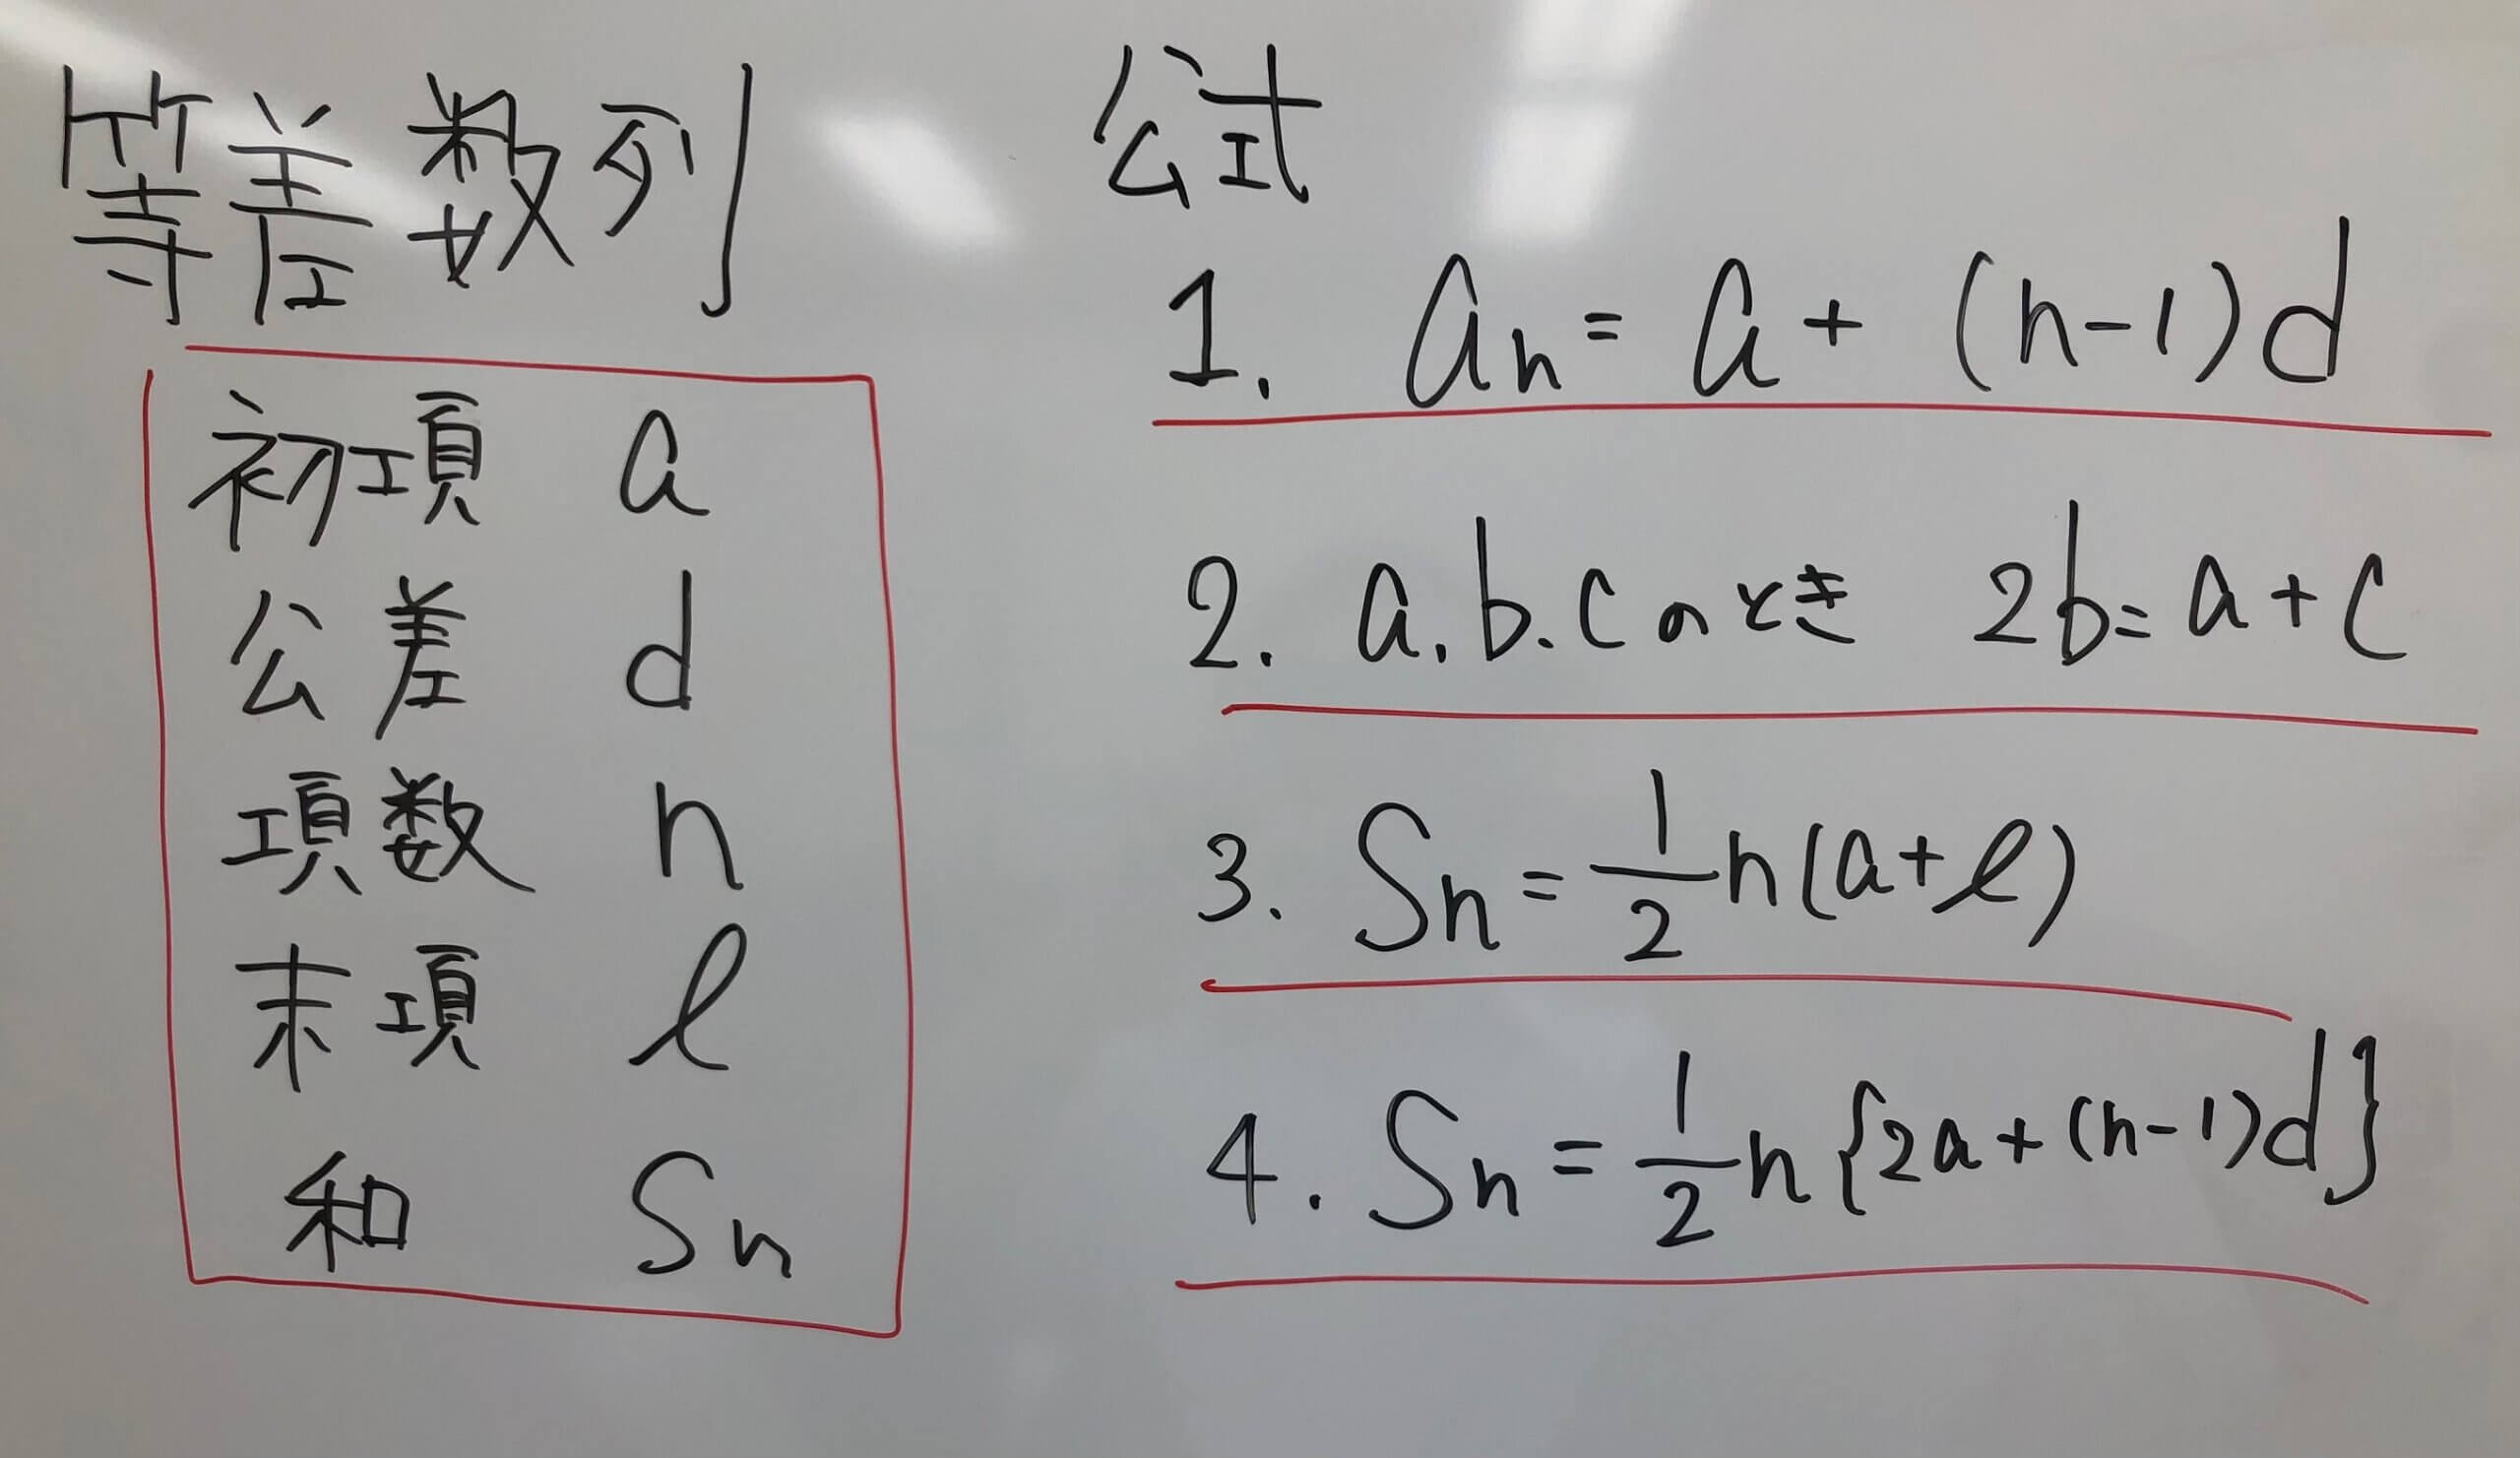 等差数列
初項 a
公差 d
項数 n
末項 l
和 Sn
公式
1. an = a + (n-1)d
2. a.b.c のとき 2b = a + c
3. Sn = 1/2 n(a+l)
4. Sn = 1/2 n{2a+(n-1)d}